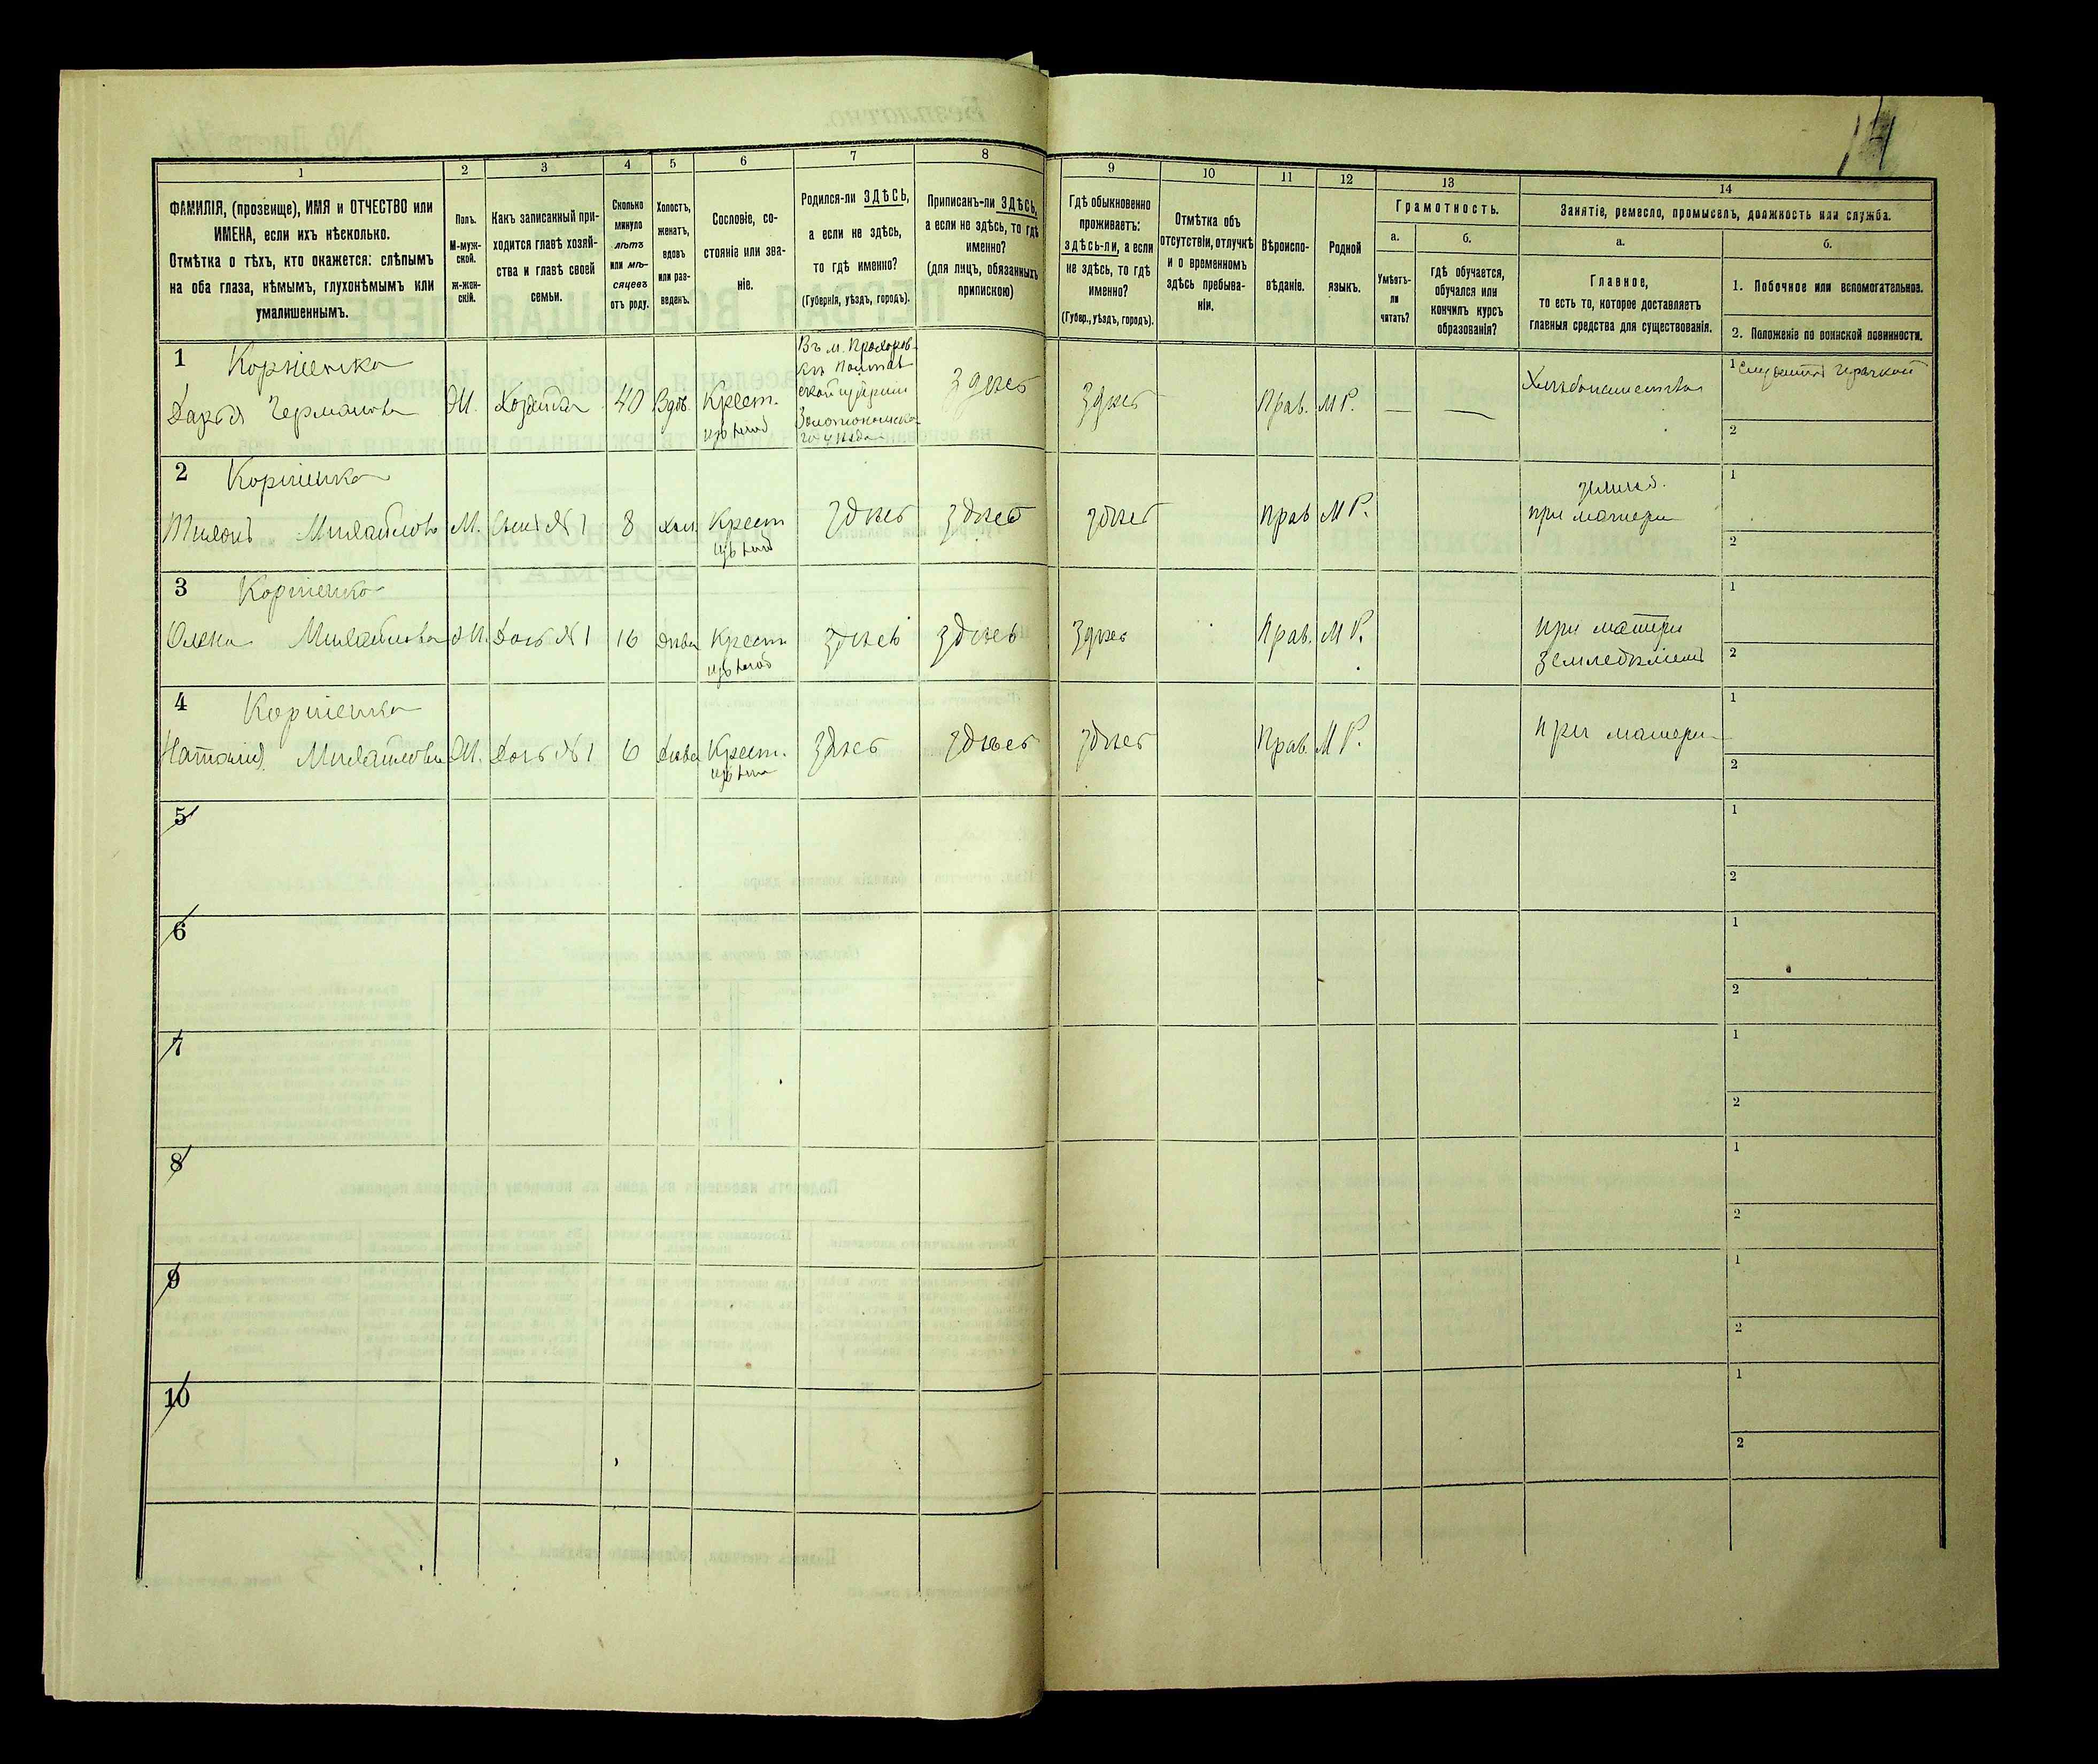 14
1
2
3
4
5
6
7
8
9
10
11
12
13
14
ФАМИЛІЯ, (прозвище), ИМЯ и ОТЧЕСТВО или
ИМЕНА, если ихъ нѣсколько.
Отмѣтка о тѣхъ, кто окажется: слѣпымъ
на оба глаза, нѣмымъ, глухонѣмымъ или
умалишеннымъ.
Полъ.
М-муж-
ской.
Ж-жен-
скій.
Какъ записанный при-
ходится главѣ хозяй-
ства и главѣ своей
семьи.
Сколько
минуло
лѣтъ
или мѣ-
сяцевъ
отъ роду.
Холостъ,
женатъ,
вдовъ
или раз-
веденъ.
Сословіе, со-
стояніе или зва-
ніе.
Родился-ли ЗДѢСЬ,
а если не здѣсь,
то гдѣ именно?
(Губернія, уѣздъ, городъ).
Приписанъ-ли ЗДѢСЬ,
а если не здѣсь, то гдѣ
именно?
(для лицъ, обязанныхъ
припискою)
Гдѣ обыкновенно
проживаетъ:
здѣсь-ли, а если
не здѣсь, то гдѣ
именно?
(Губер., уѣздъ, городъ).
Отмѣтка объ
отсутствіи, отлучкѣ
и о временномъ
здѣсь пребыва-
ніи.
Вѣроиспо-
вѣданіе.
Родной
языкъ.
Грамотность.
а.
Умѣетъ-
ли
читать?
б.
гдѣ обучается,
обучался или
кончилъ курсъ
образованія?
Занятіе, ремесло, промыселъ, должность или служба.
а.
Главное,
то есть то, которое доставляетъ
главныя средства для существованія.
б.
1. Побочное или вспомогательное.
2. Положеніе по воинской повинности.
1 Корніенко
Дарья Германова Ж. Хозяйка 40 Вдов. Крест.
Въ м. Прохоров-
кѣ Полтав
ской губерніи
Золотоношска-
го уѣзда
здѣсь здѣсь Прав. МР. — —
Хлѣбопашество
1
2
2 Корніенко
Тихонъ Михайловъ М. Сынъ №1 8 хол. Крест здѣсь здѣсь здѣсь Прав МР.
при матери
1
2
3 Корніенко
Олена Михайлова Ж. Дочь №1 16 дѣва Крест здѣсь здѣсь здѣсь Прав. МР.
при матери
1
2
4 Корніенко
Наталія Михайлова Ж. Дочь №1 6 дѣва Крест. здѣсь здѣсь здѣсь Прав. МР. при матери
1
2
5
1
2
6
1
2
7
1
2
8
1
2
9
1
2
10
1
2